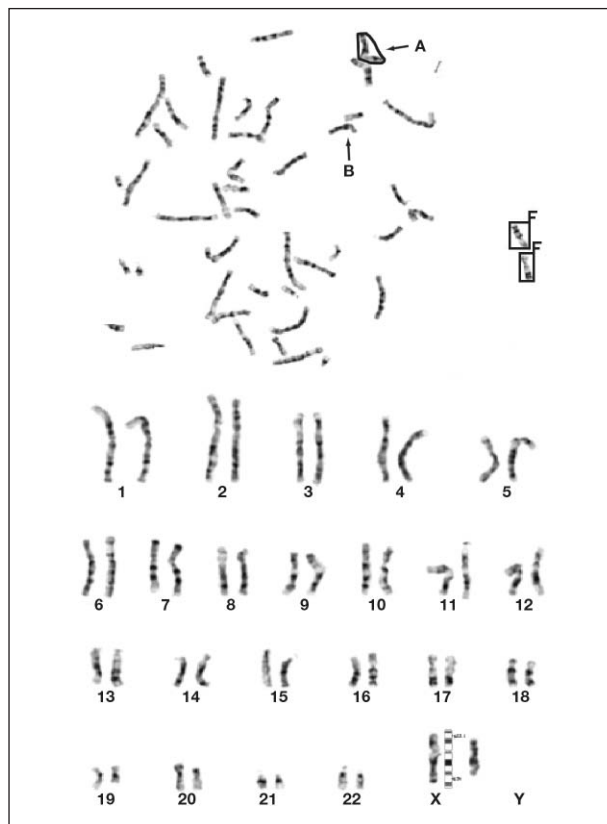 A
B
F
F
1 2 3 4 5
6 7 8 9 10 11 12
13 14 15 16 17 18
19 20 21 22 X Y